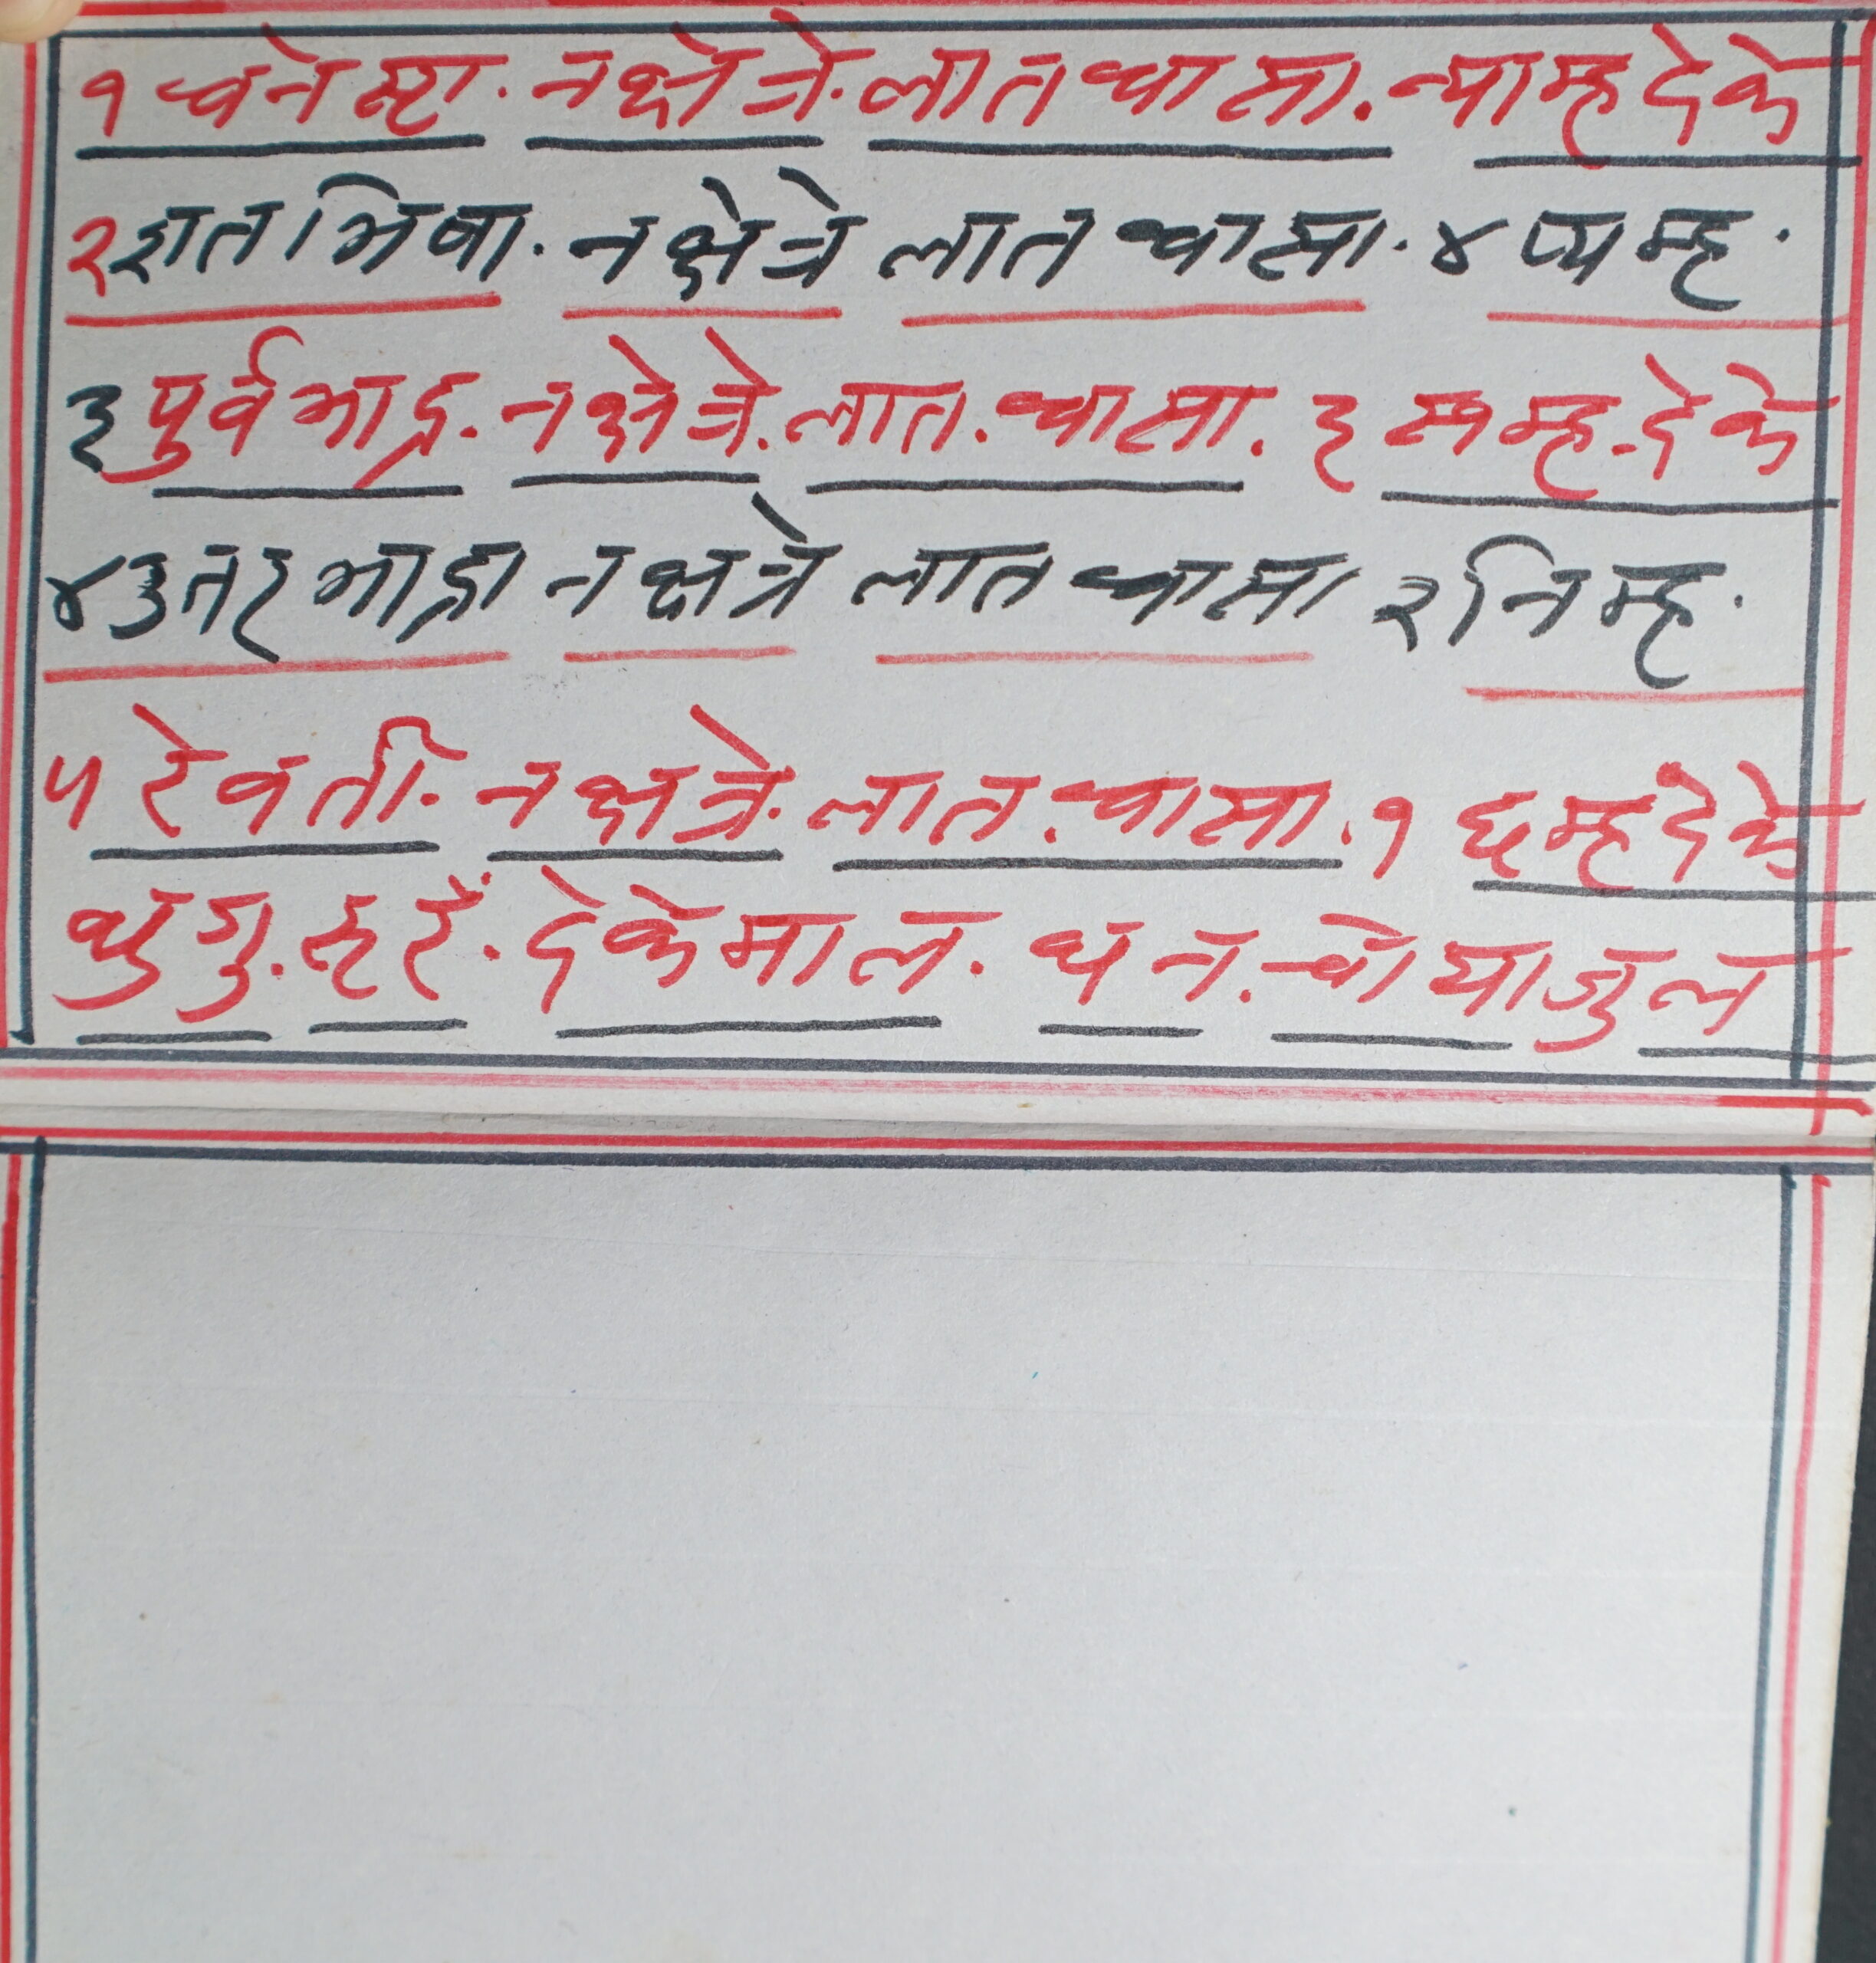 १ धनेस्टा. नक्षेत्रे. लात धासा. न्याम्ह देके
२ शतभिषा. नक्षेत्रे लात धासा. ४ प्यम्ह.
३ पुर्वभाद्र. नक्षेत्रे. लात. धासा. ३ स्वम्ह. देके
४ उतरभाद्रा नक्षत्रे लात धासा २ निम्ह.
५ रेवती. नक्षत्रे. लात. धासा. १ छम्ह देके
थुगु. रुरें. देकेमाल. धन. चोयाजुल